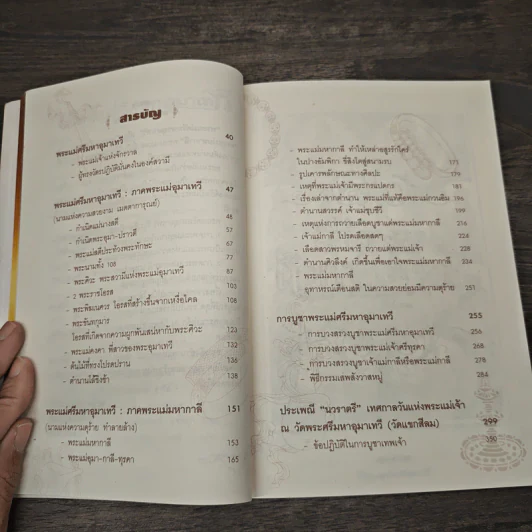 สารบัญ
พระแม่ศรีมหาอุมาเทวี 40
- พระแม่เจ้าแห่งจักรวาล
- ผู้ทรงฉัตรปฏิบัติมั่นคงในองค์สวามี
พระแม่ศรีมหาอุมาเทวี : ภาคพระแม่อุมาเทวี 47
(นางแห่งความสวยงาม เมตตาการุณย์) 46
- กำเนิดแม่นางสตี 57
- กำเนิดพระอุมา-ปราวตี 67
- พระแม่สตีประท้วงพระทักษะ 77
- พระนามทั้ง 108 87
- พระศิวะ พระสวามีแห่งพระแม่อุมาเทวี
- 2 พระราชโอรส 108
- พระพิฆเนศวร โอรสที่สร้างขึ้นจากเหงื่อไคล 108
- พระขันทกุมาร
โอรสที่เกิดจากความผูกพันเสน่หากับพระศิวะ 123
- พระแม่คงคา พี่สาวของพระอุมาเทวี 132
- ต้นไม้ที่ทรงโปรดปราน 136
- ตำนานโล้ชิงช้า 138
พระแม่ศรีมหาอุมาเทวี : ภาคพระแม่มหากาลี 151
(นางแห่งความดุร้าย ทำลายล้าง)
- พระแม่มหากาลี 153
- พระแม่อุมา-กาลี-ทุรคา 165
- พระแม่มหากาลี ทำให้เหล่าอสูรรักใคร่
ในปางอัมพิกา ซึ่งสิงโตสู่สนามรบ 175
- รูปเคารพลักษณะทางศิลปะ 179
- เหตุที่พระแม่เจ้ามีพระกรนปดกร 181
- เรื่องเล่าจากตำนาน พระแม่ที่แท้คือพระแม่กวนอิม 196
- ตำนานสวรรค์ เจ้าแม่ชุบชีวี 199
- เหตุแห่งการถวายเลือดบูชาแด่พระแม่มหากาลี 214
- เจ้าแม่กาลี โปรดเลือดสดๆ 224
- เลือดสาวพรหมจารี ถวายแด่พระแม่เจ้า 228
- ตำนานศิวลึงค์ เกิดขึ้นเพื่อเอาใจพระแม่มหากาลี 234
- พระแม่มหากาลี
อุทาหรณ์เตือนสติ ในความสวยย่อมมีความดุร้าย 251
การบูชาพระแม่ศรีมหาอุมาเทวี 255
- การบวงสรวงบูชาพระแม่ศรีมหาอุมาเทวี 256
- การบวงสรวงบูชาพระแม่เจ้าศรีทุรคา 268
- การบวงสรวงบูชาเจ้าแม่กาลีหรือพระแม่กาลี 278
- พิธีกรรมเสพพลังวาสหมู่ 284
ประเพณี “นวราตรี” เทศกาลวันแห่งพระแม่เจ้า
ณ วัดพระศรีมหาอุมาเทวี (วัดแขกสีลม) 299
- ข้อปฏิบัติในการบูชาเทพเจ้า 350